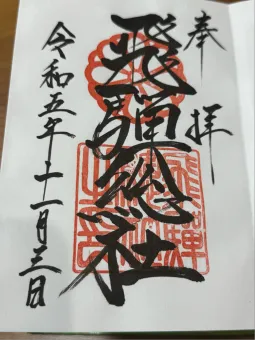 奉拝
飛騨総社
令和五年十一月三日